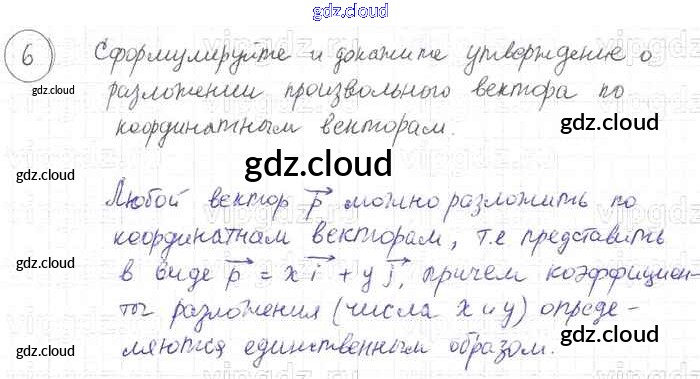 gdz.cloud
6 Сформулируйте и докажите утверждение о
разложении произвольного вектора по
координатным векторам.
gdz.cloud
gdz.cloud
gdz.cloud
Любой вектор p можно разложить по
координатнам векторам, т.е представить
в виде p = x i + y j, причем коэффициен-
ты разложения (числа x и y) опреде-
ляются единственным образом.
gdz.cloud
gdz.cloud
gdz.cloud
gdz.cloud